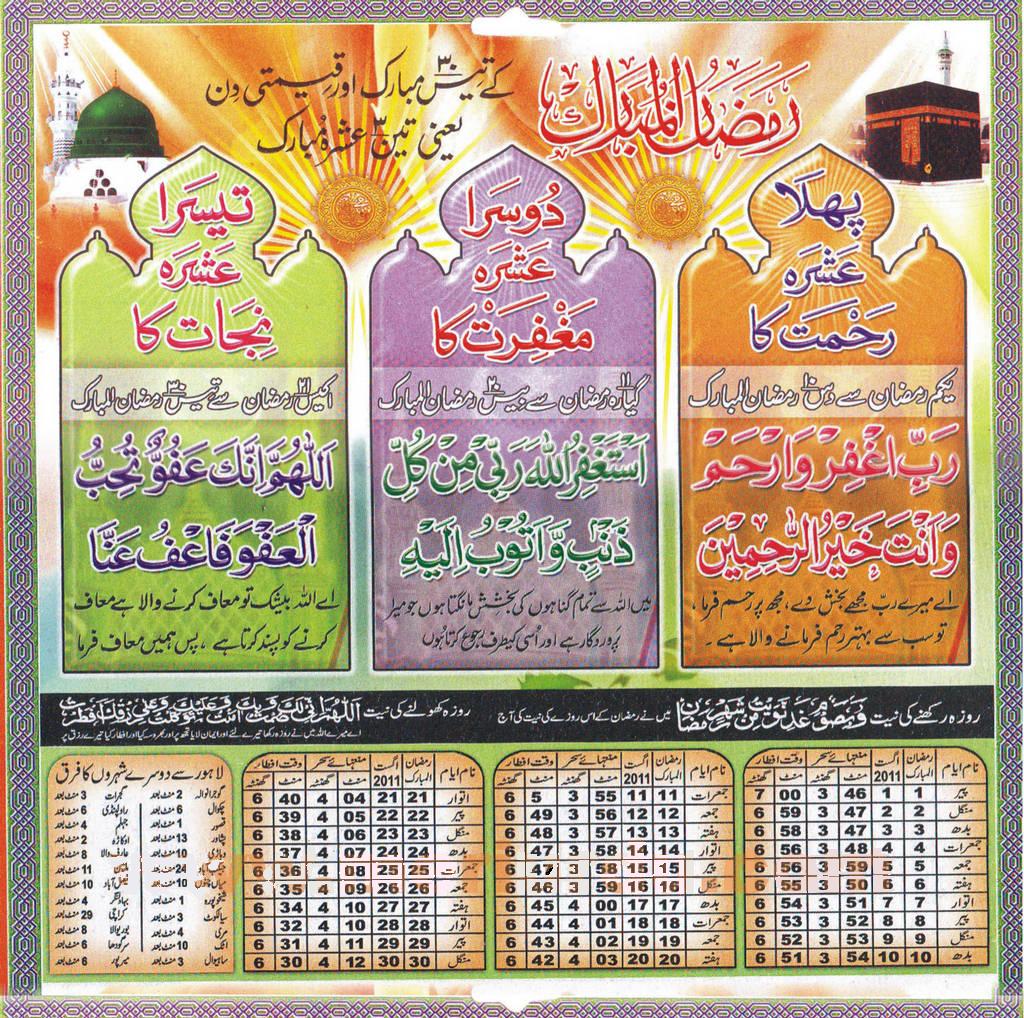 رَمَضَانُ الْمُبَارَك
کے تیس۳۰ مبارک اور قیمتی دن
یعنی تین۳ عشرۂ مبارک
پہلا
عشرہ
رحمت کا
یکم رمضان سے دس۱۰ رمضان المبارک
رَبِّ اغْفِرْ وَارْحَمْ
وَاَنْتَ خَيْرُ الرّٰحِمِيْنَ
اے میرے ربّ مجھے بخش دے، مجھ پر رحم فرما،
تو سب سے بہتر رحم فرمانے والا ہے۔
دُوسرا
عشرہ
مغفرت کا
گیارہ۱۱ رمضان سے بیس۲۰ رمضان المبارک
اَسْتَغْفِرُ اللّٰهَ رَبِّیْ مِنْ كُلِّ
ذَنْۢبٍ وَّاَتُوْبُ اِلَيْهِ
میں اللہ سے تمام گناہوں کی بخشش مانگتا ہوں جو میرا
پروردگار ہے اور اُسی کیطرف رجوع کرتا ہُوں
تیسرا
عشرہ
نجات کا
اکیس۲۱ رمضان سے تیس۳۰ رمضان المبارک
اَللّٰهُمَّ اِنَّكَ عَفُوٌّ تُحِبُّ
الْعَفْوَ فَاعْفُ عَنَّا
اے اللہ بیشک تو معاف کرنے والا ہے معاف
کرنے کو پسند کرتا ہے، پس ہمیں معاف فرما
روزہ رکھنے کی نیت وَبِصَوْمِ غَدٍ نَّوَيْتُ مِنْ شَهْرِ رَمَضَانَ میں نے رمضان کے اس روزے کی نیت کی آج
روزہ کھولنے کی نیت
نام ایام رمضان المبارک اگست 2011 منتہائے سحر منٹ گھنٹہ وقت افطار منٹ گھنٹہ
پیر 1 1 46 3 00 7
منگل 2 2 47 3 59 6
بدھ 3 3 47 3 58 6
جمعرات 4 4 48 3 56 6
جمعہ 5 5 59 3 56 6
ہفتہ 6 6 50 3 55 6
اتوار 7 7 51 3 54 6
پیر 8 8 52 3 53 6
منگل 9 9 53 3 52 6
بدھ 10 10 54 3 51 6
نام ایام رمضان المبارک اگست 2011 منتہائے سحر منٹ گھنٹہ وقت افطار منٹ گھنٹہ
جمعرات 11 11 55 3 5 6
جمعہ 12 12 56 3 49 6
ہفتہ 13 13 57 3 48 6
اتوار 14 14 58 3 47 6
پیر 15 15 58 3 47 6
منگل 16 16 59 3 46 6
بدھ 17 17 00 4 45 6
جمعرات 18 18 01 4 44 6
جمعہ 19 19 02 4 43 6
ہفتہ 20 20 03 4 42 6
نام ایام رمضان المبارک اگست 2011 منتہائے سحر منٹ گھنٹہ وقت افطار منٹ گھنٹہ
اتوار 21 21 04 4 40 6
پیر 22 22 05 4 39 6
منگل 23 23 06 4 38 6
بدھ 24 24 07 4 37 6
جمعرات 25 25 08 4 36 6
جمعہ 26 26 09 4 35 6
ہفتہ 27 27 10 4 34 6
اتوار 28 28 10 4 32 6
پیر 29 29 11 4 31 6
منگل 30 30 12 4 30 6
لاہور سے دوسرے شہروں کا فرق
گوجرانوالہ 2 منٹ بعد گجرات 3 منٹ بعد
چکوال 6 منٹ بعد راولپنڈی 6 منٹ بعد
قصور 1 منٹ بعد جہلم 4 منٹ بعد
پشاور 13 منٹ بعد اوکاڑہ 2 منٹ بعد
وہاڑی 10 منٹ بعد عارف والا 8 منٹ بعد
جیکب آباد 24 منٹ بعد ملتان 11 منٹ بعد
میاں چنوں 10 منٹ بعد فیصل آباد 10 منٹ بعد
شیخوپورہ 1 منٹ بعد بہاولنگر 4 منٹ بعد
سیالکوٹ 3 منٹ بعد کراچی 29 منٹ بعد
مری 4 منٹ بعد بوریوالا 8 منٹ بعد
اٹک 10 منٹ بعد سرگودھا 6 منٹ بعد
ساہیوال 3 منٹ بعد میرپور 6 منٹ بعد